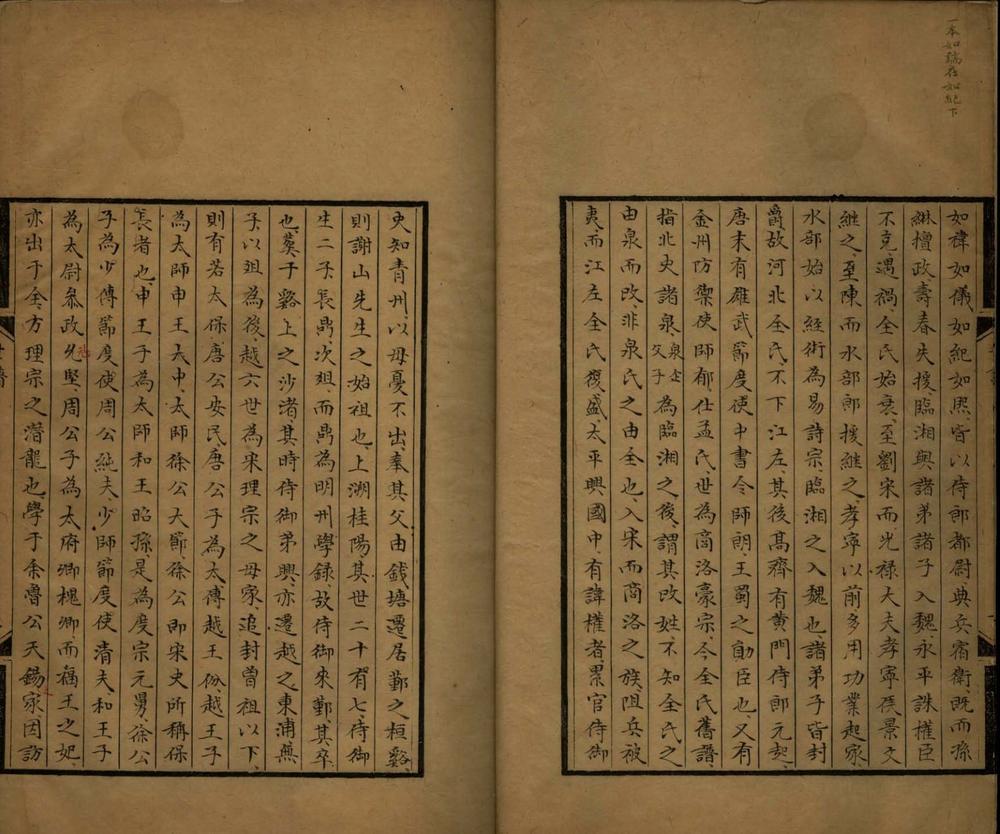 一本如瑞在如紀下
如禕如儀如紀如熙皆以侍郎都尉典兵宿衛既而孫
綝擅政壽春失援臨湘與諸弟諸子入魏永平誅權臣
不克遇禍全氏始衰至劉宋而光祿大夫孝寧侯景文
繼之至陳而水部郎援繼之孝寧以前多用功業起家
水部始以經術為易詩宗臨湘之入魏也諸弟子皆封
爵故河北全氏不下江左其後高齊有黃門侍郎元起
唐末有雄武節度使中書令師朗王蜀之勛臣也又有
金州防禦使師郁仕孟氏世為商洛豪宗今全氏舊譜
指北史諸泉泉企父子為臨湘之後謂其改姓不知全氏之
由泉而改非泉氏之由全也入宋而商洛之族阻兵被
夷而江左全氏復盛太平興國中有諱權者累官侍御
史知青州以母憂不出奉其父由錢塘遷居鄞之桓谿
則謝山先生之始祖也上溯桂陽其世二十有七侍御
生二子長鼎次爼而鼎為明州學錄故侍御來鄞其卒
也葬于谿上之沙渚其時侍御弟興亦遷越之東浦無
子以爼為後越六世為宋理宗之母家追封曾祖以下
則有若太保唐公安民唐公子為太傅越王份越王子
為太師申王大中太師徐公大節徐公即宋史所稱保
長者也申王子為太師和王昭孫是為度宗元舅徐公
子為少傅節度使周公純夫少師節度使清夫和王子
為太尉叅政允堅周公子為太府卿槐卿而福王之妃
亦出于全方理宗之潛龍也學于余魯公天錫家因訪